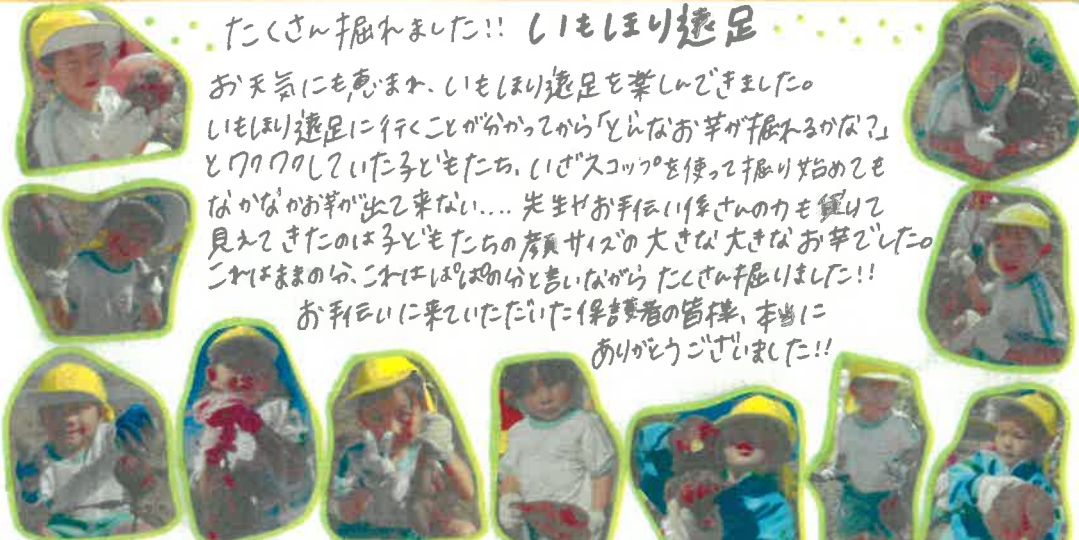 たくさん掘れました!! いもほり遠足
お天気にも恵まれ、いもほり遠足を楽しんできました。
いもほり遠足に行くことが分かってから「どんなお芋が掘れるかな?」
とワクワクしていた子どもたち、いざスコップを使って掘り始めても
なかなかお芋が出て来ない.... 先生やお手伝い係さんの力も借りて
見えてきたのは子どもたちの顔サイズの大きな大きなお芋でした。
これはままの分、これはぱぱの分と言いながらたくさん掘りました!!
お手伝いに来ていただいた保護者の皆様、本当に
ありがとうございました!!